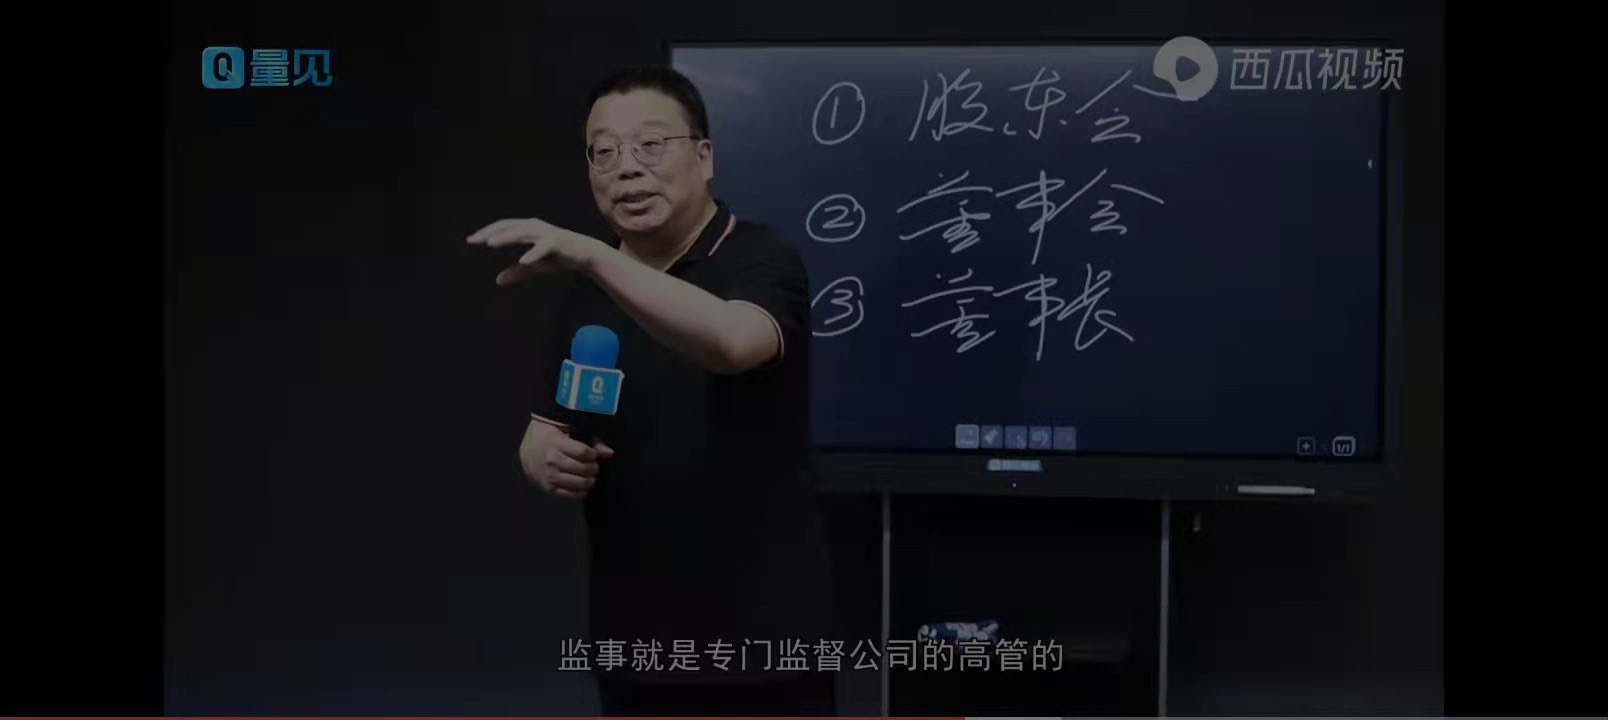 量见
西瓜视频
① 股东会
② 董事会
③ 董事长
Q
1/1
监事就是专门监督公司的高管的